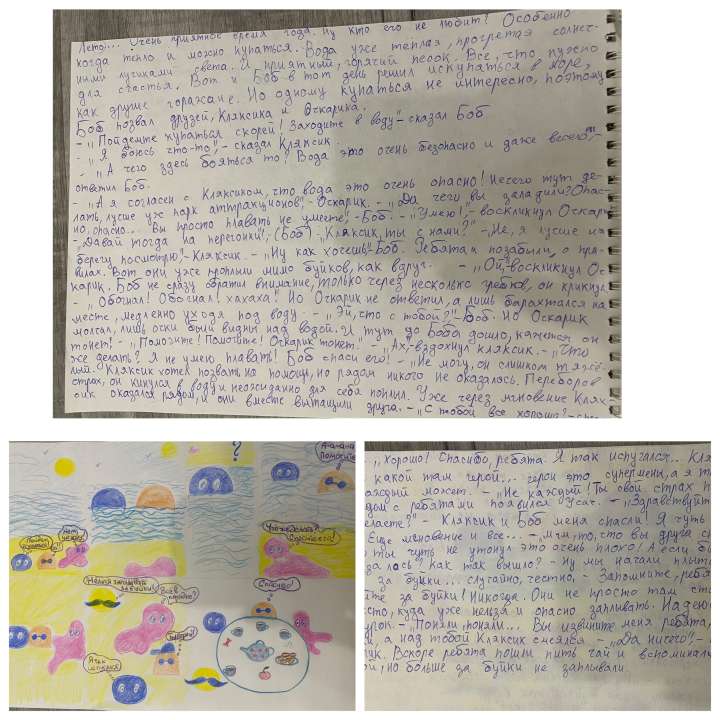 Лето... Очень приятное время года. Ну кто его не любит? Особенно
когда тепло и можно купаться. Вода уже тёплая, прогретая солнеч-
ными лучиками света. И приятный, горячий песок. Всё, что нужно
для счастья. Вот и Боб в тот день решил искупаться в море,
как другие горожане. Но одному купаться не интересно, поэтому
Боб позвал друзей, Кляксика и Оскарика.
- „Пойдемте купаться скорей! Заходите в воду"- сказал Боб
- „Я боюсь что-то",- сказал Кляксик.
- „А чего здесь бояться то? Вода это очень безопасно и даже весело",-
ответил Боб.
- „А я согласен с Кляксиком, что вода это очень опасно! Нечего тут де-
лать, лучше уж парк аттракционов"- Оскарик. - „Да чего вы заладили? Опас-
но, опасно... Вы просто плавать не умеете",- Боб. - „Умею!",- воскликнул Оскарик
„Давай тогда на перегонки!",- (Боб) - Кляксик, ты с нами?" - „Не, я лучше на
берегу посмотрю"- Кляксик. - „Ну как хочешь"- Боб. Ребята и позабыли о пра-
вилах. Вот они уже проплыли мимо буйков, как вдруг. - „Ой",- воскликнул Ос-
карик. Боб не сразу обратил внимание, только через несколько гребков, он крикнул
- „Обогнал! Обогнал! хахаха! Но Оскарик не ответил, а лишь барахтался на
месте, медленно уходя под воду. - „Эй, что с тобой?"- Боб. Но Оскарик
молчал, лишь очки были видны над водой. И тут до Боба дошло, кажется он
тонет! - „Помогите! Помогите! Оскарик тонет". - „Ах,"- вздохнул кляксик. - „Что
же делать? Я не умею плавать! Боб спаси его! - „Не могу, он слишком тяжё-
лый. Кляксик хотел позвать на помощь, но рядом никого не оказалось. Переборов
страх, он кинулся в воду и неожиданно для себя поплыл. Уже через мгновение Клякс-
сик оказался рядом, и они вместе вытащили друга. - „С тобой все хорошо?-
Пойдем купаться!
Нет ужас!
?
А-а-а-а Помогите
Уже бегу! Спасаего!
Нельзя заплывать за буйки!
Всё в порядке?
Спасибо!
„Хорошо! Спасибо, ребята. Я так испугался.
какой там герой... герои это супермены, а я
каждый может. - „Не каждый! Ты свой страх
дом с ребятами появился Усач. - „Здравствуйте
делаете?" - Кляксик и Боб меня спасли! Я чуть
Ещё мгновение и все... - „М-м, то, что вы друга
ты чуть не утонул это очень плохо! А если бы
Как так вышло? - Ну мы начали
за буйки... случайно, честно, - Запомните, ребята
те за буйки! Никогда. Они не просто там
куда уже нельзя и опасно заплывать. Надеюсь
урок. - „Поняли, поняли... Вы извините меня ребята,
а над тобой Кляксик смеялся - „Да ничего"-
Вскоре ребята пошли пить чай и вспоминали
но больше за буйки не заплывали.